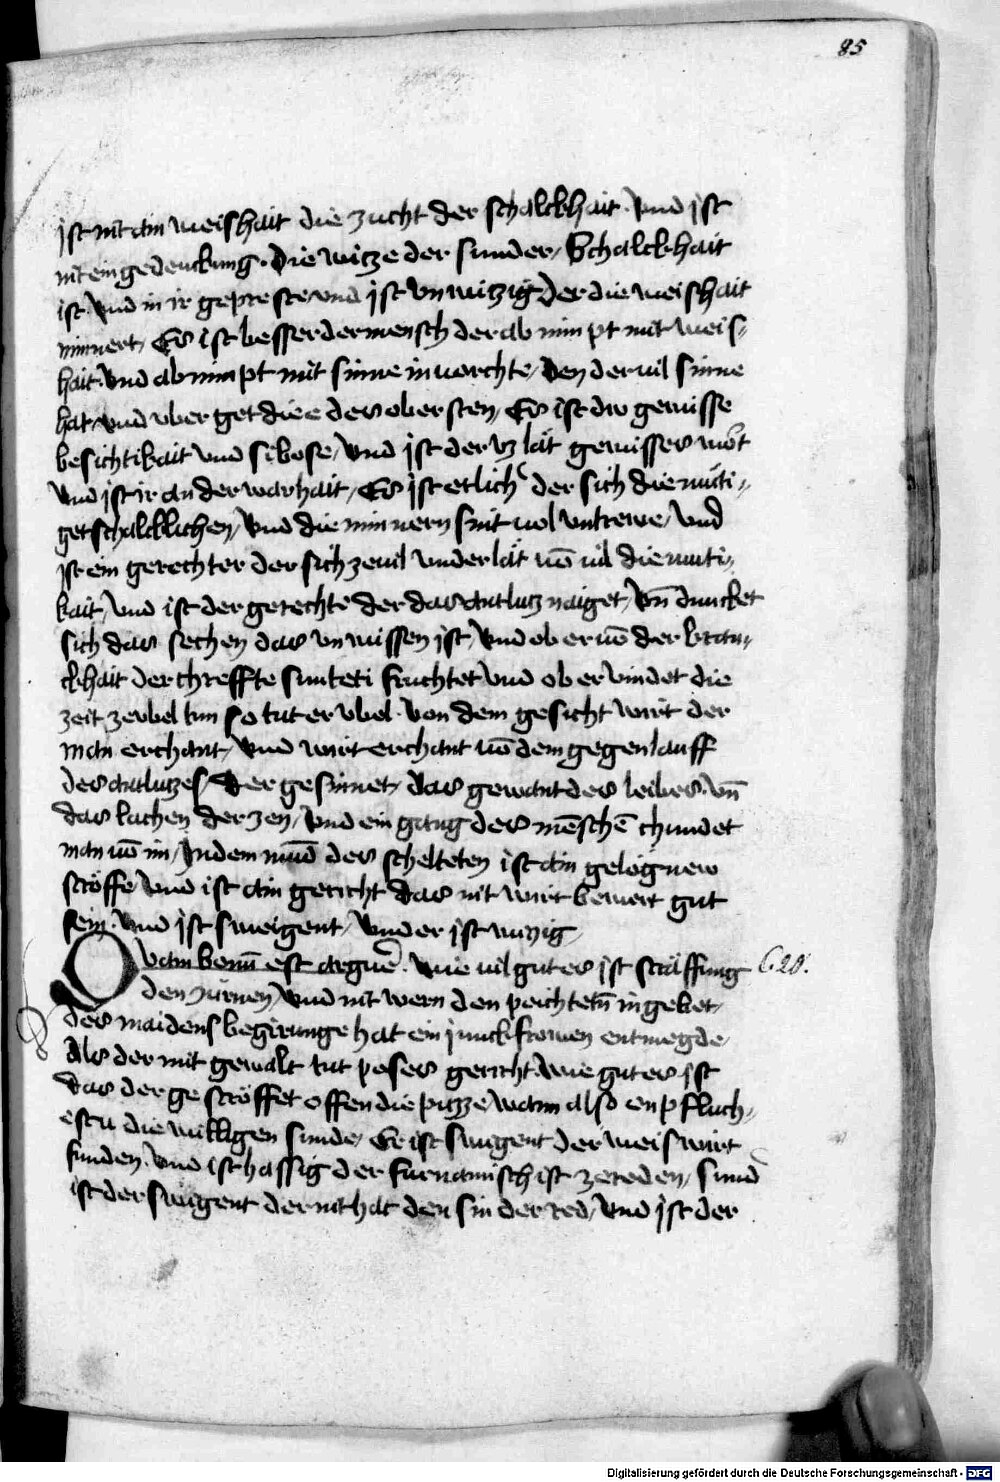 85
ist nit ain weishait die zucht der schalckhait · vnd ist
nit ein gedenckung · Die witze der sunder / Schalckhait
ist · vnd in ir gepreste vnd ist vnwitzig der die weishait
minnert / Es ist besser der mensch der ab nimpt mit weis-
hait · vnd ab nimpt mit sinne in vorchte / Den der vil sinne
hat / vnd vber get die e des obersten / Es ist dw gewisse
besichtikait vnd si bose / vnd ist der vz lät gewisses wort
vnd ist ir an der warhait / Es ist etlich der sich diemüti-
get schalcklichen / vnd die innnern sint vol vntrewe / vnd
ist ein gerechter der sich ze vil vnderlät vō vil diemuti-
kait / vnd ist der gerechte der das antlutz naiget / vn̄ duncket
sich das sechen das vnwissen ist / vnd ob er vō der kran-
ckhait der chreffte sunten fruchtet vnd ob er vindet die
zeit ze vbel tun so tut er vbel · von dem gesicht wirt der
man erchant / vnd wirt erchant vō dem gegenlauff
des antlutzes / der gesinnet / das gewant des leibes · vn̄
das lachen der zen / vnd ein gang des mēschē chundet
man vō im / In dem mūd des schelteten ist ain gelögnew
ströffe / vnd ist ain gericht das nit wirt bewert gut
sein · vnd ist sweigent / vnd er ist witzig /
Qvam bonū est arguē · wie vil gut es ist sträffung
den zürnen / vnd nit wern den peichtetn̄ in gebet /
des maidens begirunge hat ein junckfrowen entmegde /
Als der mit gewalt tut poses gericht wie gut es ist
das der geströffet offen die puzze wann also enpfluch-
estu die willigen sunde / Er ist swigent der weis wirt
funden · vnd ist hassig der furnamisch ist ze reden / sund
ist der swigent der nit hat den sin der red / vnd ist der
Digitalisierung gefördert durch die Deutsche Forschungsgemeinschaft - DFG